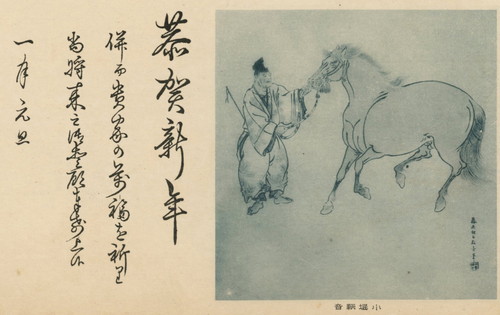 恭賀新年
併而貴家の萬福を祈り
尚将来之御愛顧奉希上候
一月元旦
小堀鞆音